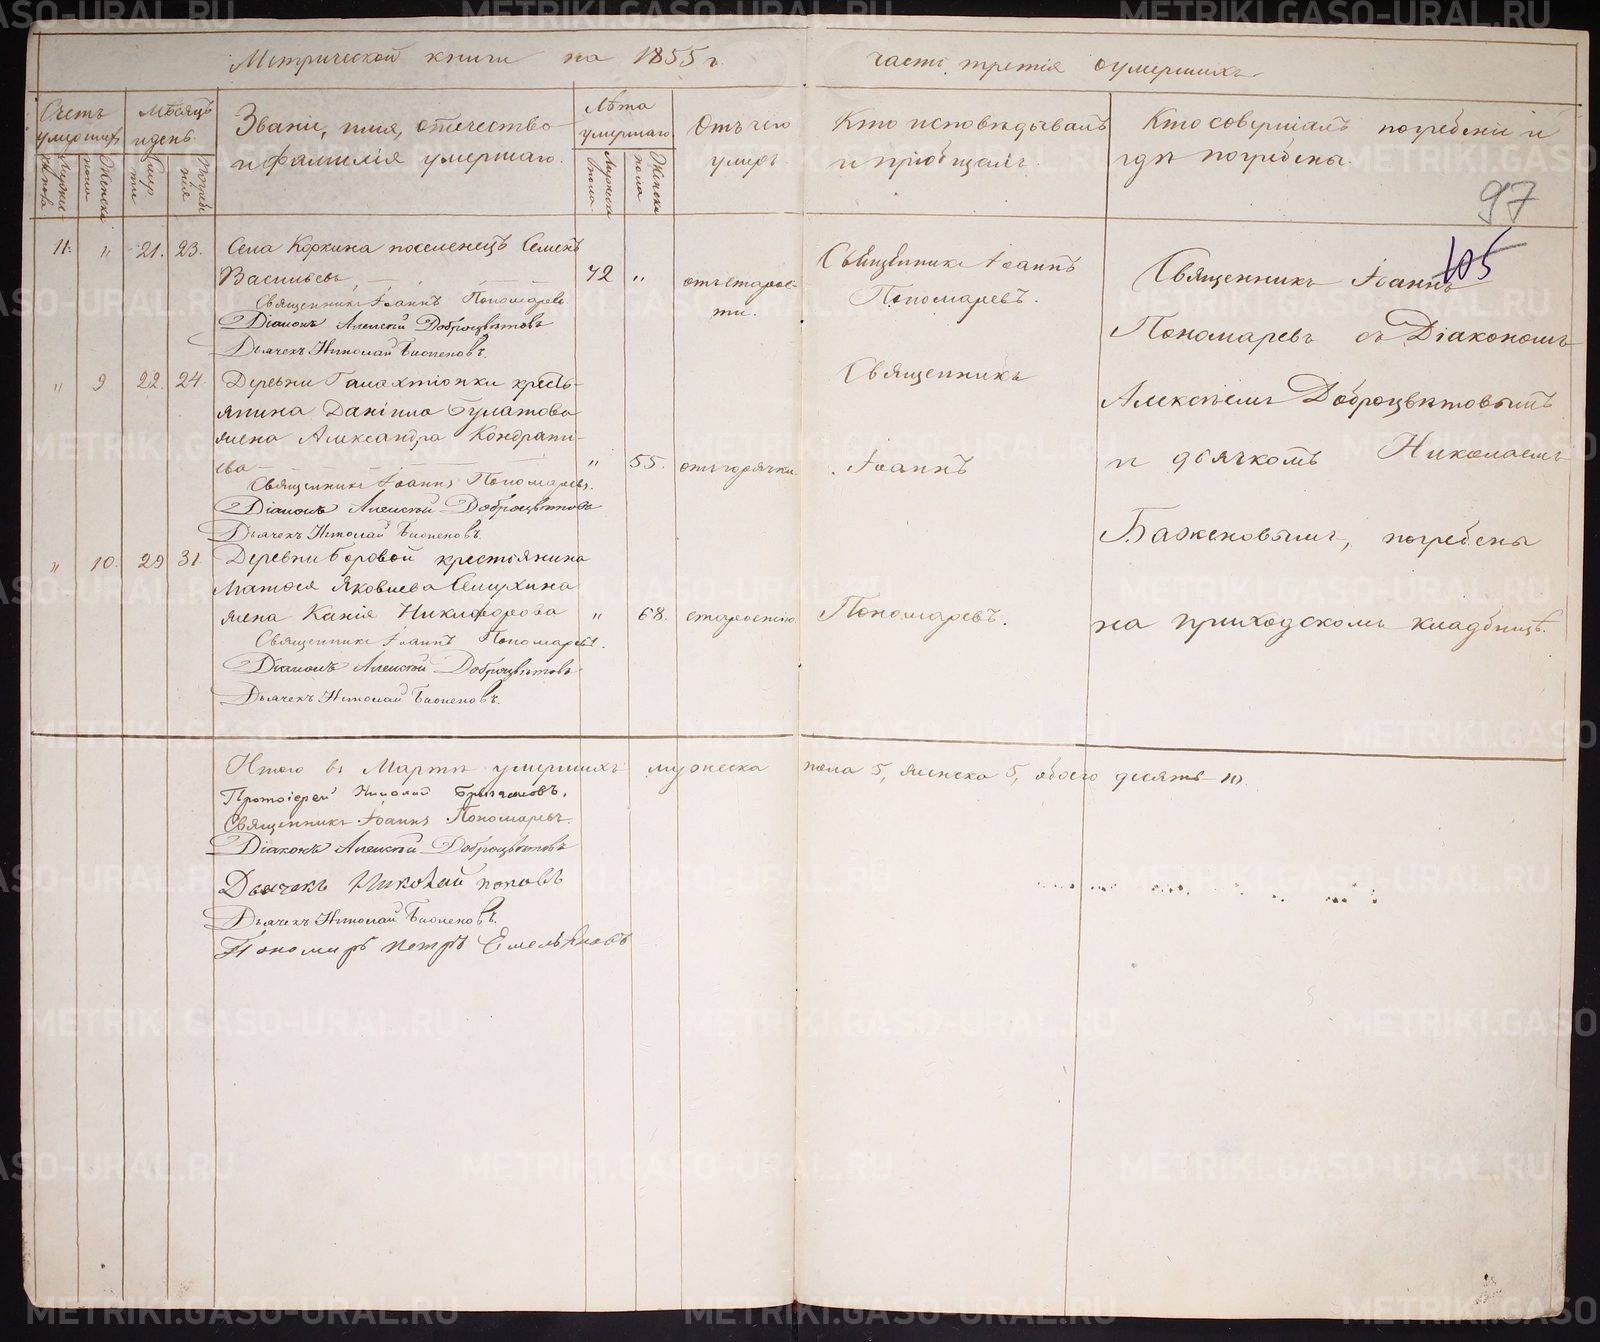 Метрической книги на 1855 г. часть третія о умершихъ.
Счетъ умершихъ
Мужеска пола
Женска пола
Мѣсяцъ и день
Смерти
Погребенія
Званіе, имя, отечество
и фамилія умершаго.
Лѣта умершаго
Мужеска пола
Женска пола
Отъ чего умеръ
Кто исповѣдывалъ
и пріобщалъ.
Кто совершалъ погребеніе и
гдѣ погребены.
97
105
11. „ 21. 23. Села Коркина поселенецъ Семенъ
Васильевъ 72 „ отъ старос-
ти.
Священникъ Іоаннъ Пономаревъ
Діаконъ Алексѣй Доброцвѣтовъ
Дьячекъ Николай Баженовъ.
„ 9 22. 24. Деревни кресть-
янина Даніила Булатова
жена Александра Кондрать-
ева „ 55. отъ горячки
Священникъ Іоаннъ Пономаревъ.
Діаконъ Алексѣй Доброцвѣтовъ
Дьячекъ Николай Баженовъ
„ 10. 29 31. Деревни Боровой крестьянина
Матѳея Яковлева
жена Никифорова „ 68. старостію
Священникъ Іоаннъ Пономаревъ.
Діаконъ Алексѣй Доброцвѣтовъ
Дьячекъ Николай Баженовъ.
Священникъ Іоаннъ
Пономаревъ.
Священникъ
Іоаннъ
Пономаревъ.
Священникъ Іоаннъ
Пономаревъ съ Діакономъ
Алексѣемъ Доброцвѣтовымъ
и дьячкомъ Николаемъ
Баженовымъ, погребены
на приходскомъ кладбищѣ.
Итого въ Мартѣ умершихъ мужеска пола 5, женска 5, обоего десять 10.
Протоіерей Николай
Священникъ Іоаннъ Пономаревъ.
Діаконъ Алексѣй Доброцвѣтовъ
Дьячекъ Николай Поповъ
Дьячекъ Николай Баженовъ.
Пономарь Петръ Емельяновъ
METRIKI.GASO-URAL.RU